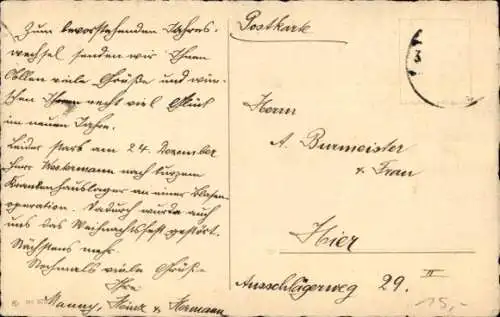 Zum bevorstehenden Jahres-
wechsel senden wir Ihnen
Allen viele Grüße und wün-
schen Ihnen recht viel Glück
im neuen Jahre.
Leider starb am 24. Dezember
Herr Westermann nach kurzem
Krankenhauslager an einer Blasen-
operation. Dadurch wurde auch
uns das Weihnachtsfest gestört.
Nächstens mehr.
Nochmals viele Grüße
Ihre
Manny, Heinz & Hermann
Postkarte
3
Herrn
A. Burmeister
& Frau
Hier
Ausschlägerweg 29. II
15,-